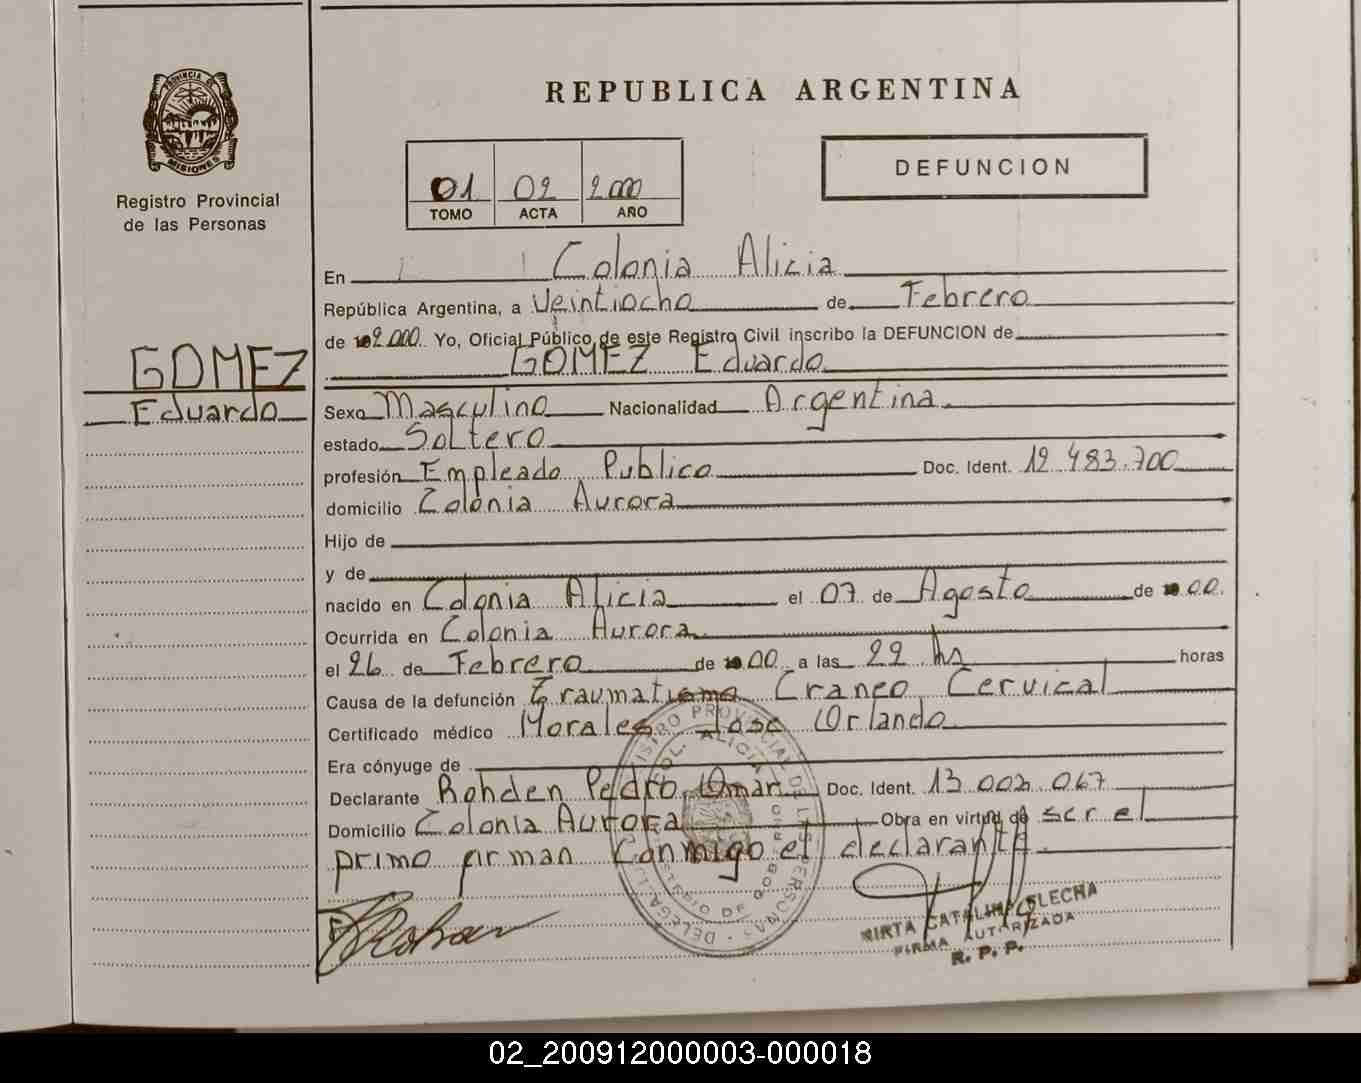 PROVINCIA DE
MISIONES
Registro Provincial
de las Personas
GOMEZ
Eduardo
REPUBLICA ARGENTINA
01 02 2000
TOMO ACTA AÑO
DEFUNCION
En Colonia Alicia
República Argentina, a Veintiocho de Febrero
de 2.000 Yo, Oficial Público de este Registro Civil inscribo la DEFUNCION de
GOMEZ Eduardo
Sexo Masculino Nacionalidad Argentina
estado Soltero
profesión Empleado Publico Doc. Ident. 12.483.700
domicilio Colonia Aurora
Hijo de
y de
nacido en Colonia Alicia el 07 de Agosto de 00
Ocurrida en Colonia Aurora
el 26 de Febrero de 00 a las 22 hs horas
Causa de la defunción Traumatismo Craneo Cervical
Certificado médico Morales Jose Orlando
Era cónyuge de
Declarante Rohden Pedro Omar Doc. Ident. 13.002.067
Domicilio Colonia Aurora Obra en virtud de ser el
primo firman conmigo el declarante
MIRTA CATALINA FLECHA
FIRMA AUTORIZADA
R. P. P.
02_200912000003-000018